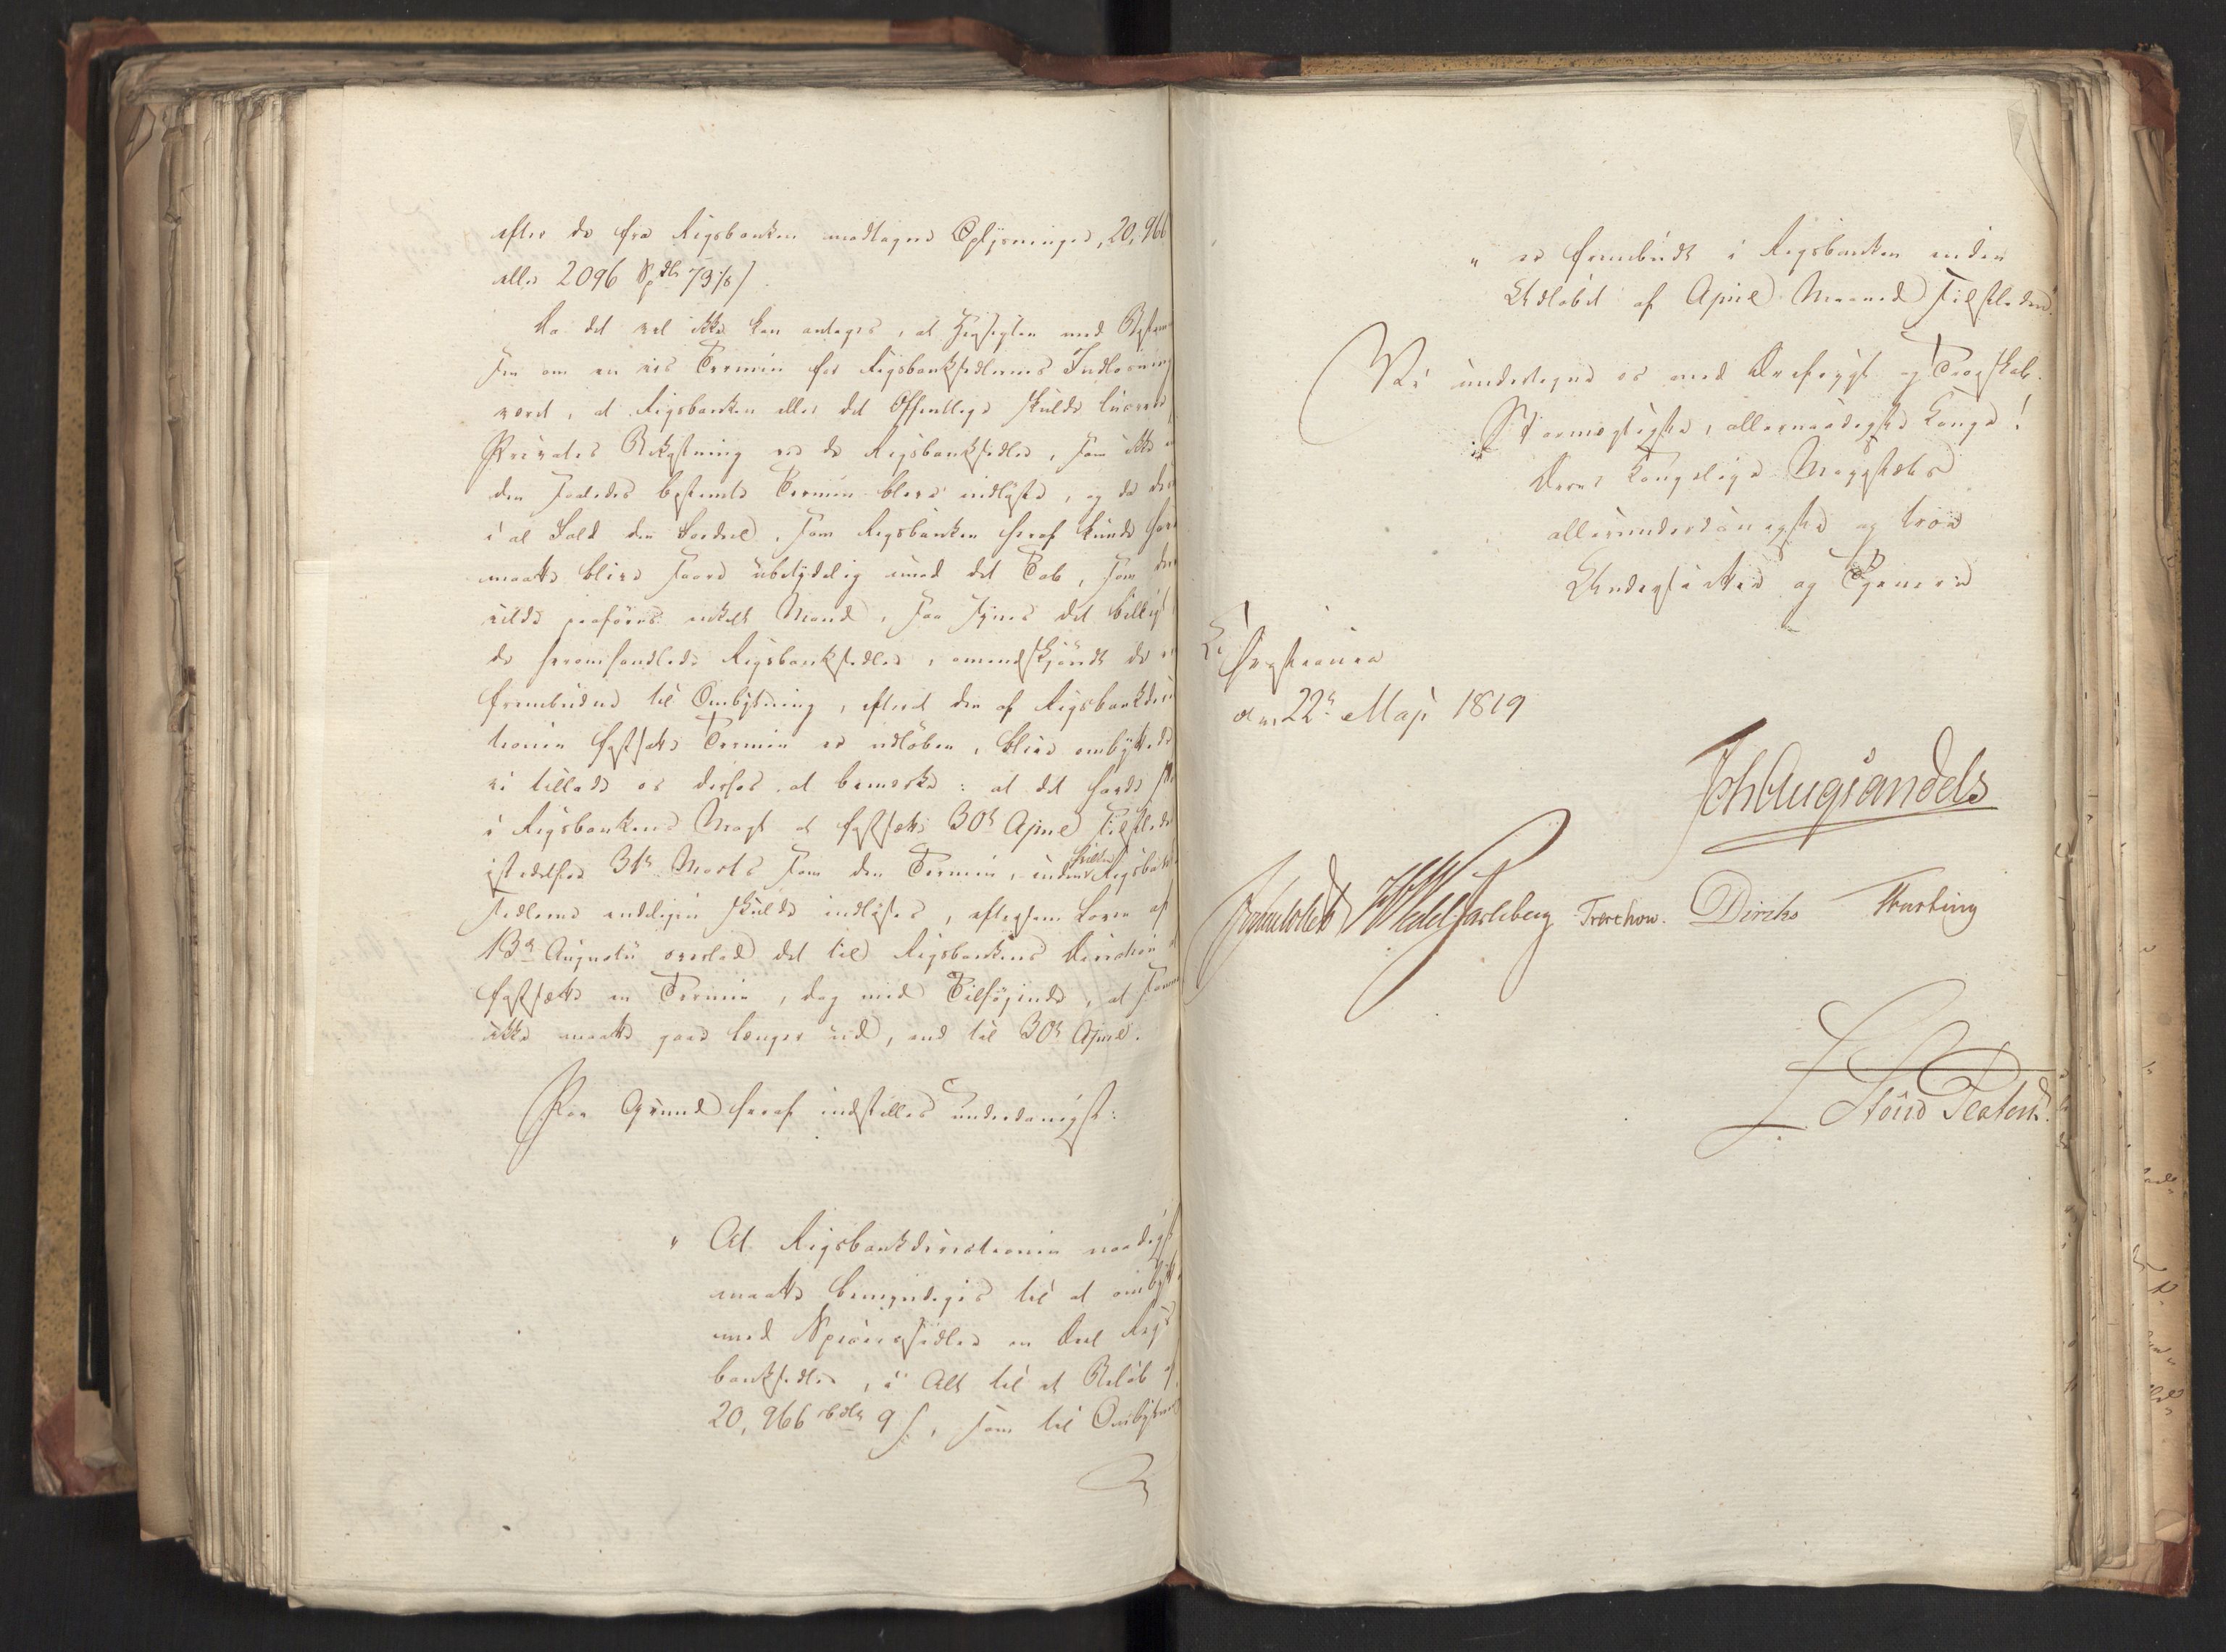 efter de fra Rigsbanken modtagne Oplysninger, 20,966
eller 2096 Spdlr 73 1/8 /.
Da det vel ikke kan antages, at Hensigten med Bestem
sen om en vis Termin for Rigsbanksedlernes Indløsning
været, at Rigsbanken eller det Offentlige skulde
Privates Bekostning ved de Rigsbanksedler, som ikke
den saaledes bestemte Termin bleve indløste, og da den
i al Fald den Fordeel, som Rigsbanken heraf kunde have
maatte blive saare ubetydelig imod det Tab, som den
vilde paaføres enkelt Mand, saa synes det billigt
de heromhandlede Rigsbanksedler, omendskjøndt de
frembudne til Ombytning, efterat den af Rigsbankdirec
tionen fastsatte Termin er udløben, blive ombyttede
vi tillade os derfor at bemærke: at det havde
i Rigsbankens Magt at fastsætte 30te April sidstleden
istedetfor 31te Marts som den Termin, inden hvilken Rigsbank
sedlerne endeligen skulde indløses, eftersom Loven af
13de Augusti overlod det til Rigsbankens Direction at
fastsætte en Termin, dog med Tilføiende, at samme
ikke maatte gaae længer ud, end til 30te April.
Paa Grund heraf indstilles underdanigst:
" At Rigsbankdirectionen naadigst
maatte bemyndiges til at ombytte
med Speciessedler en Deel Rigs
banksedler, i Alt til et Beløb af
20,966 rbdlr 9 s., som til Ombytning
" er frembudt i Rigsbanken inden
Udløbet af April Maaned sidstleden.
Vi undertegne os med Ærefrygt og Troskab.
Stormægtigste, allernaadigste Konge!
Deres Kongelige Majestæts
allerunderdanigste og troe
Undersaatter og Tjenere
Christiania
den 22de Maji 1819
JohAugSandels
Sommerhielm HWedelJarlsberg Treschow. Diriks Fasting
L. Stoud Platou.